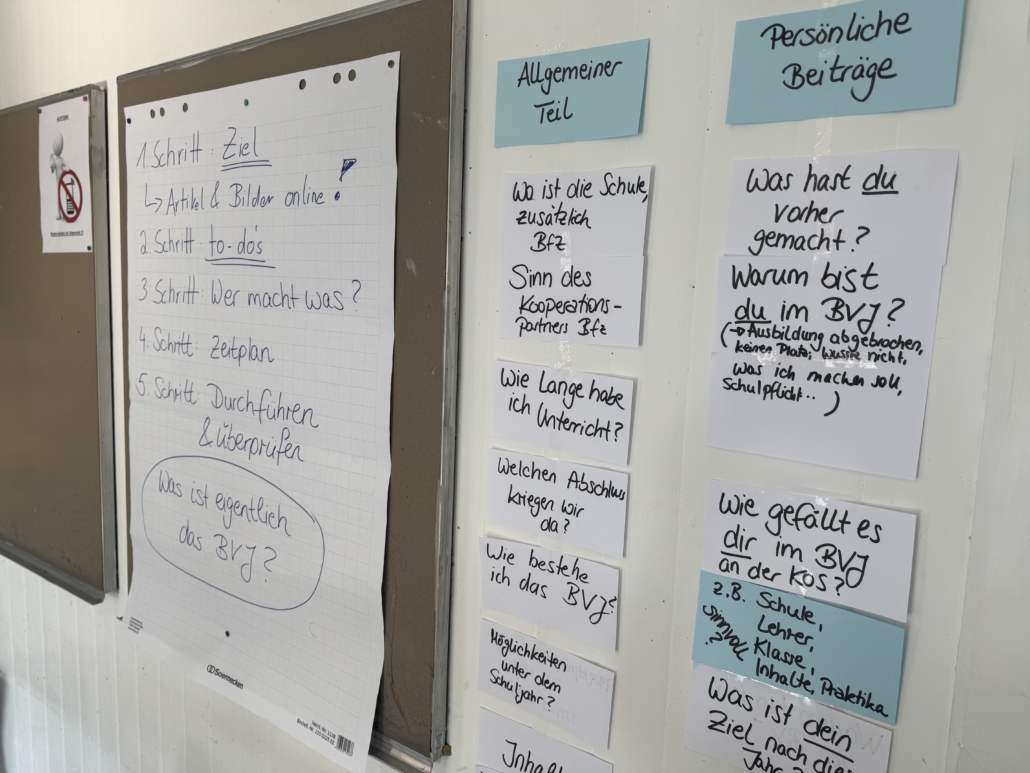 1. Schritt: Ziel
↳ Artikel & Bilder online!
2. Schritt: to-do's
3. Schritt: Wer macht was?
4. Schritt: Zeitplan
5. Schritt: Durchführen
& überprüfen
Was ist eigentlich
das BVJ?
Soennecken
Allgemeiner
Teil
Wo ist die Schule,
zusätzlich
Bfz
Sinn des
Kooperations-
partners Bfz
Wie Lange habe
ich Unterricht?
Welchen Abschluss
kriegen wir
da?
Wie bestehe
ich das BVJ?
Möglichkeiten
unter dem
Schuljahr?
Inhalt
Persönliche
Beiträge
Was hast du
vorher
gemacht?
Warum bist
du im BVJ?
(→ Ausbildung abgebrochen,
keinen Platz; wusste nicht,
was ich machen soll,
Schulpflicht.. )
Wie gefällt es
dir im BVJ
an der KOS?
z.B. Schule,
Lehrer,
Klasse,
Inhalte, Praktika
sinnvoll
?
Was ist dein
Ziel nach
Jahr